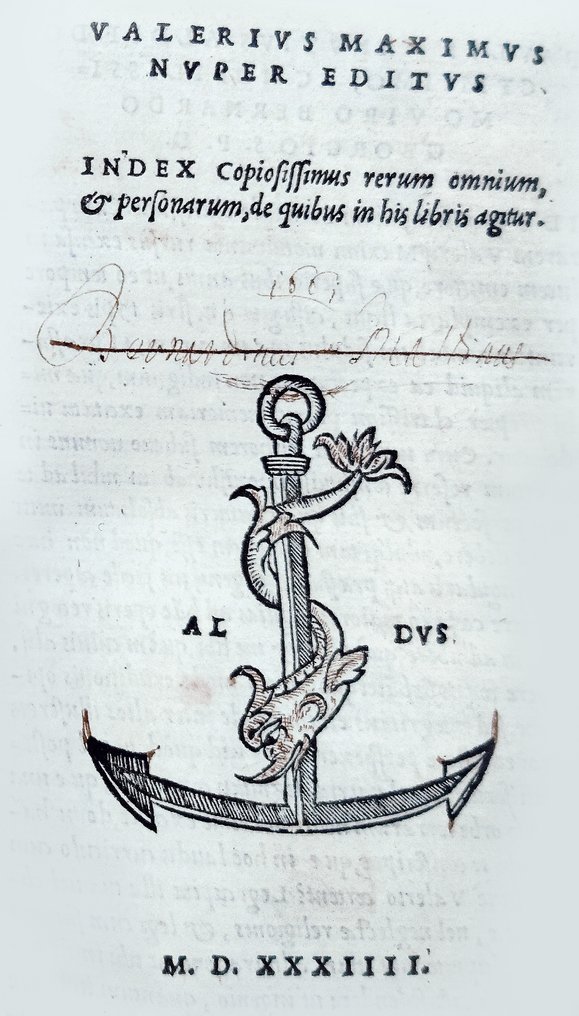 VALERIVS MAXIMVS
NVPER EDITVS.
INDEX Copiosissimus rerum omnium,
& personarum, de quibus in his libris agitur.
AL DVS.
M. D. XXXIIII.